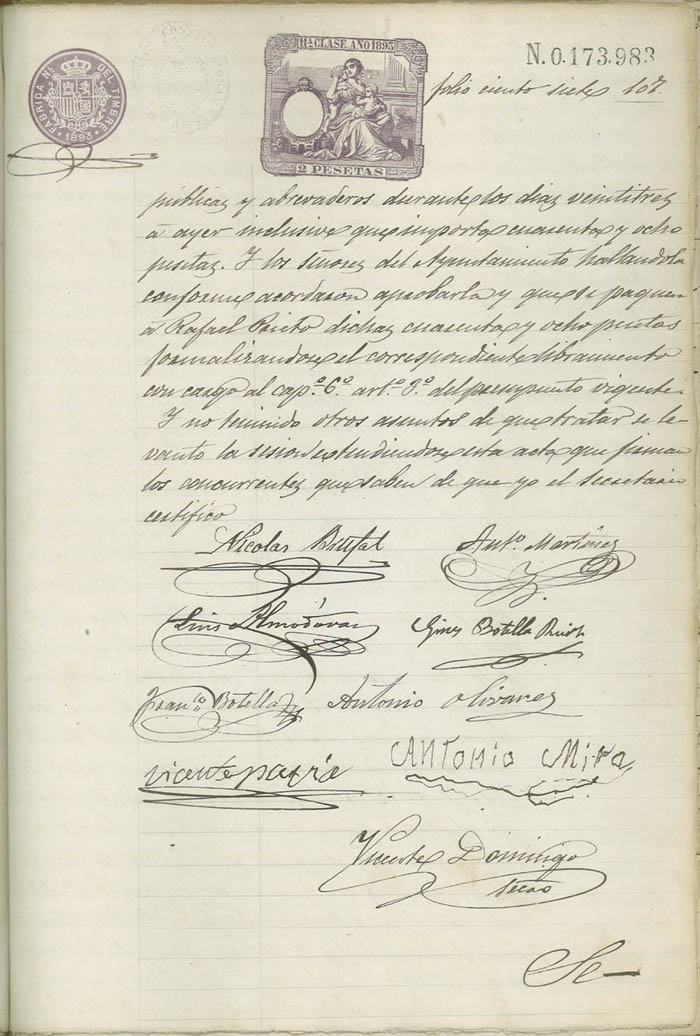 FABRICA Nal. DEL TIMBRE
1893
11ª CLASE. AÑO 1893
2 PESETAS
N.0.173.983
folio ciento siete 107.
publicas y abrevaderos durante los dias veintitres
á ayer inclusive que importa cuarenta y ocho
pesetas. Y los señores del Ayuntamiento hallandola
conforme acordaron aprobarla y que se paguen
á Rafael Prieto dichas cuarenta y ocho pesetas
formalizandose el correspondiente libramiento
con cargo al cap.º 6.º art.º 9.º del presupto vigente.
Y no teniendo otros asuntos de que tratar se le-
vantó la sesion extendiendose esta acta que firman
los concurrentes que saben de que yo el secretario
certifico
Nicolas Brufal Ant.º Martinez
Luis Almodóvar Gines Botella
Fran.co Botella Antonio Olivarez
Vicente ANTONIO MIRA
Vicente Domingo
Secrio
Se—